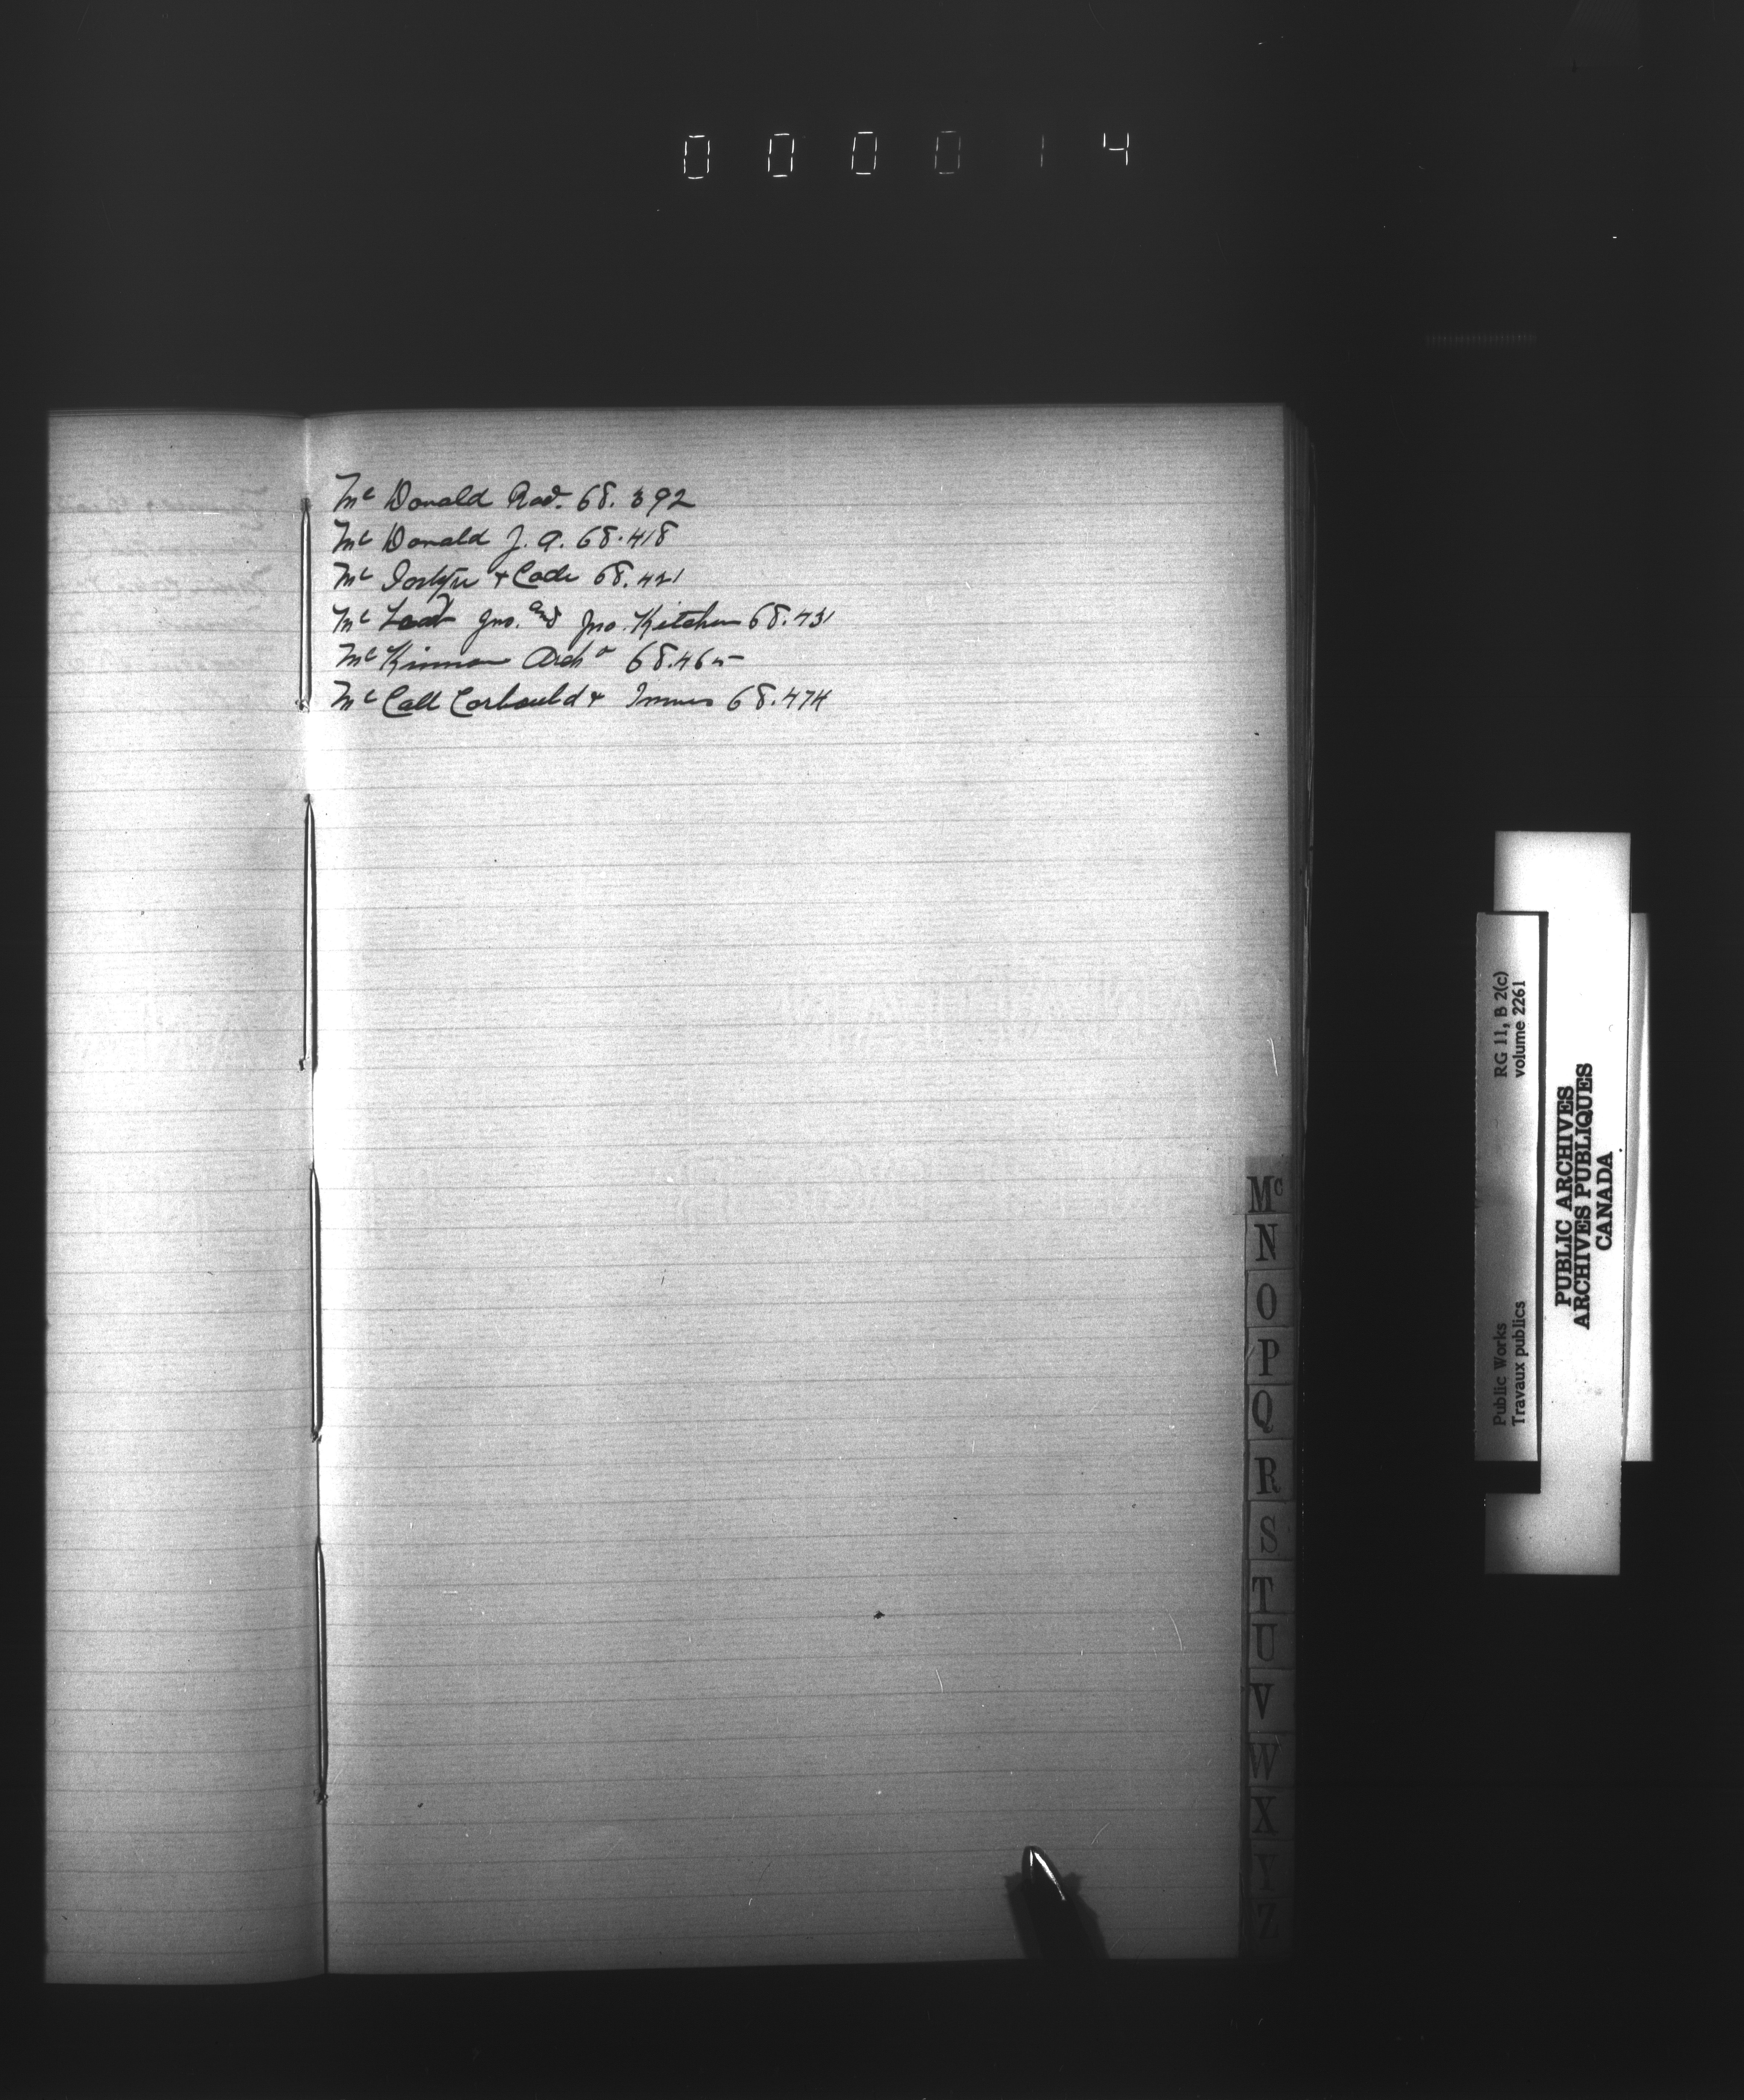 000014
Mc Donald Rod. 68.392
Mc Donald J. A. 68.418
Mc & Code 68.421
Mc Jno. and Jno. Kitchen 68.431
Mc Kinnon Archd 68.465
Mc Call Corbould & Innes 68.474
Mc
N
O
P
Q
R
S
T
U
V
W
X
Y
Z
RG 11, B 2(c)
volume 2261
Public Works
Travaux publics
PUBLIC ARCHIVES
ARCHIVES PUBLIQUES
CANADA